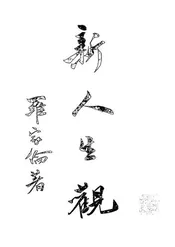 新人生觀
羅家倫著